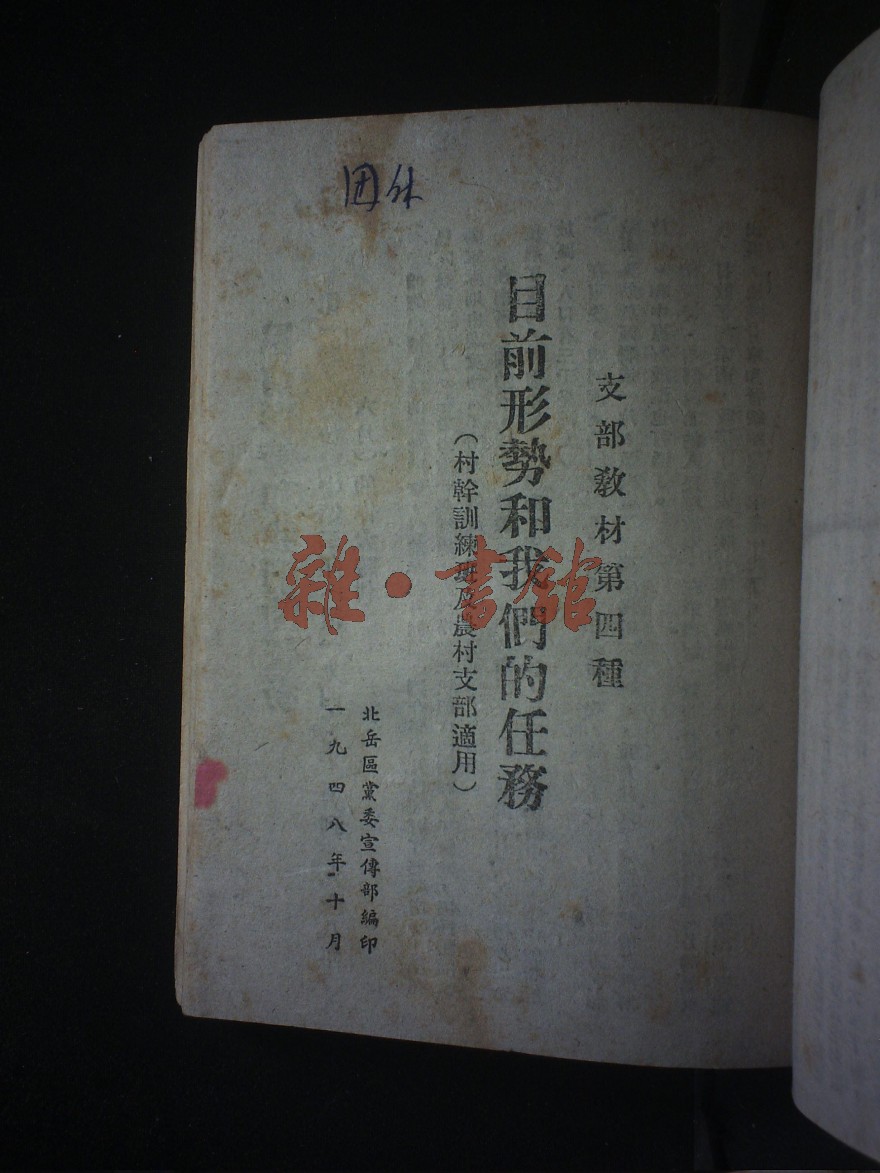 支部教材第四種
目前形勢和我們的任務
（村幹訓練班及農村支部適用）
北岳區黨委宣傳部編印
一九四八年十月
雜·書館